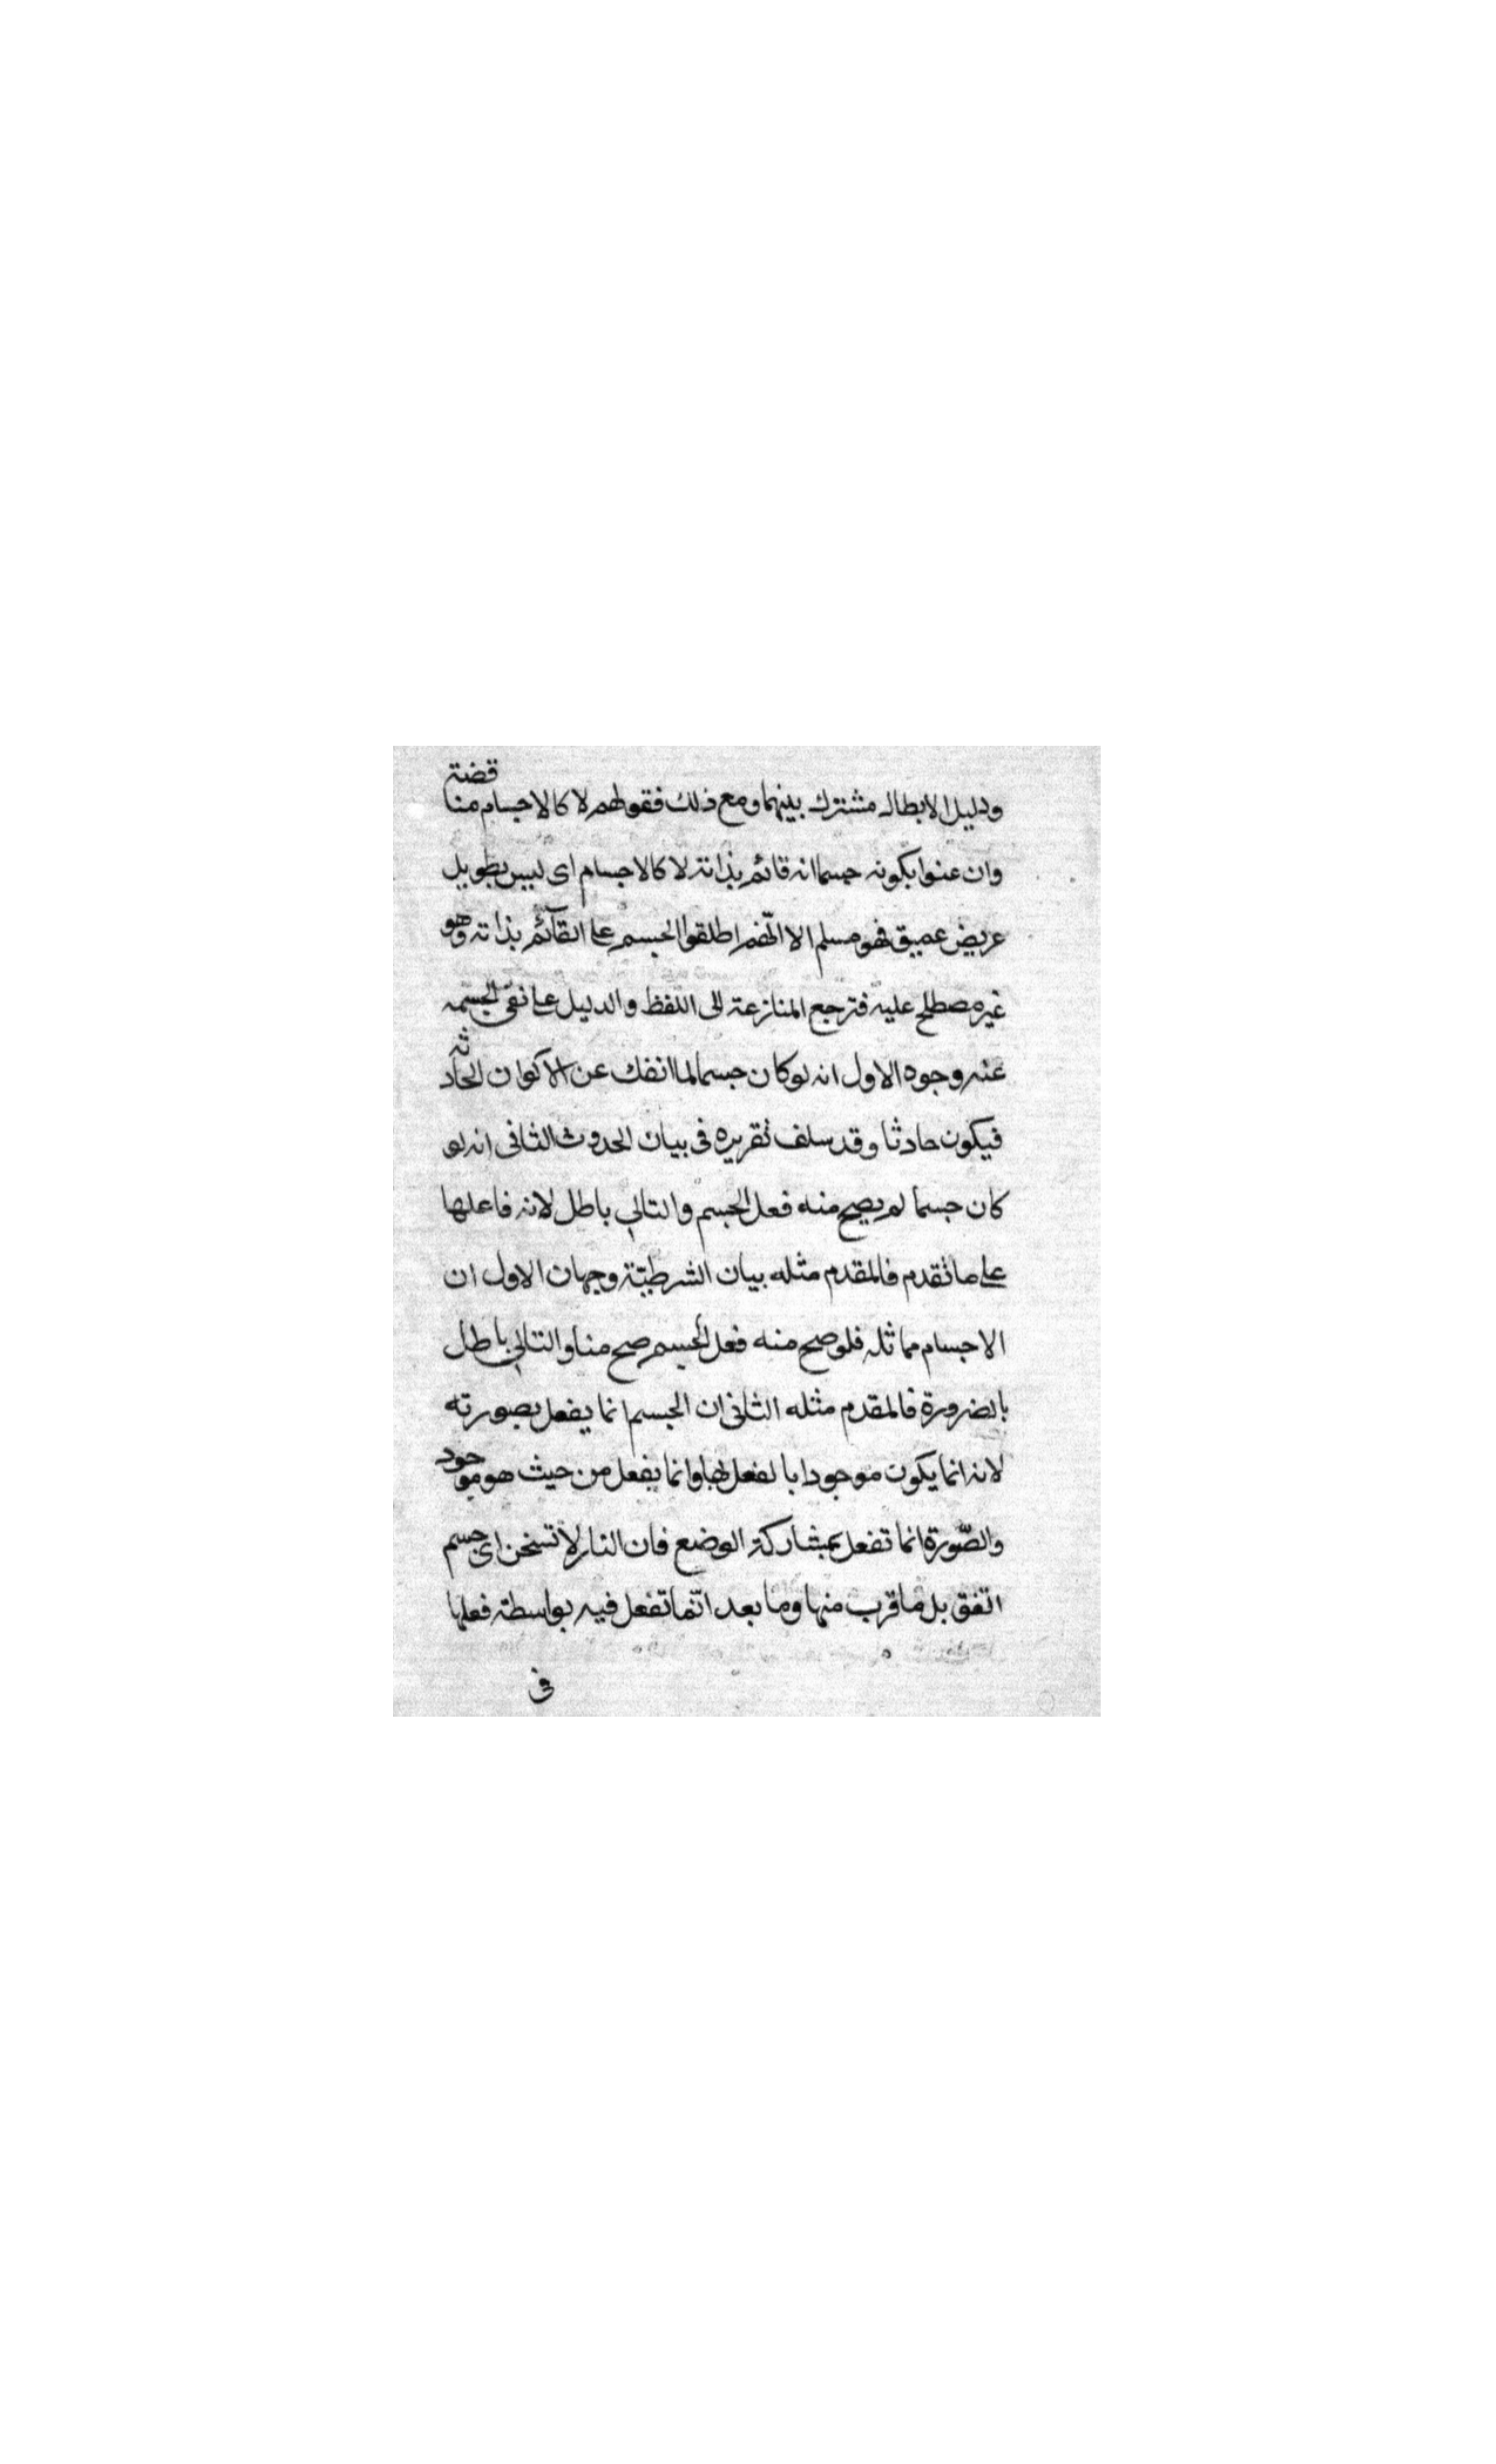 ودليل الابطال مشترك بينهما ومع ذلك فقولهم لا كالاجسام مناقضة
وان عنوا بكونه جسما انه قائم بذاته لا كالاجسام اى ليس بطويل
عريض عميق فهو مسلم الا انّهم اطلقوا الجسم على القآئم بذاته وهو
غير مصطلح عليه فترجع المنازعة الى اللفظ والدليل على نفى الجسمية
عنه وجوه الاول انه لو كان جسما لما انفك عن الاكوان الحادثة
فيكون حادثا وقد سلف تقريره فى بيان الحدوث الثانى انه لو
كان جسما لم يصح منه فعل الجسم والتالي باطل لانه فاعلها
على ما تقدم فالمقدم مثله بيان الشرطيّة وجهان الاول ان
الاجسام مماثله فلو صح منه فعل الجسم صح منا والتالي باطل
بالضرورة فالمقدم مثله الثانى ان الجسم انما يفعل بصورته
لانه انما يكون موجودا بالفعل بها وانما يفعل من حيث هو موجود
والصّورة انما تفعل بمشاركة الوضع فان النار لا تسخن اى جسم
اتفق بل ما قرب منها وما بعد انّما تفعل فيه بواسطة فعلها
فى